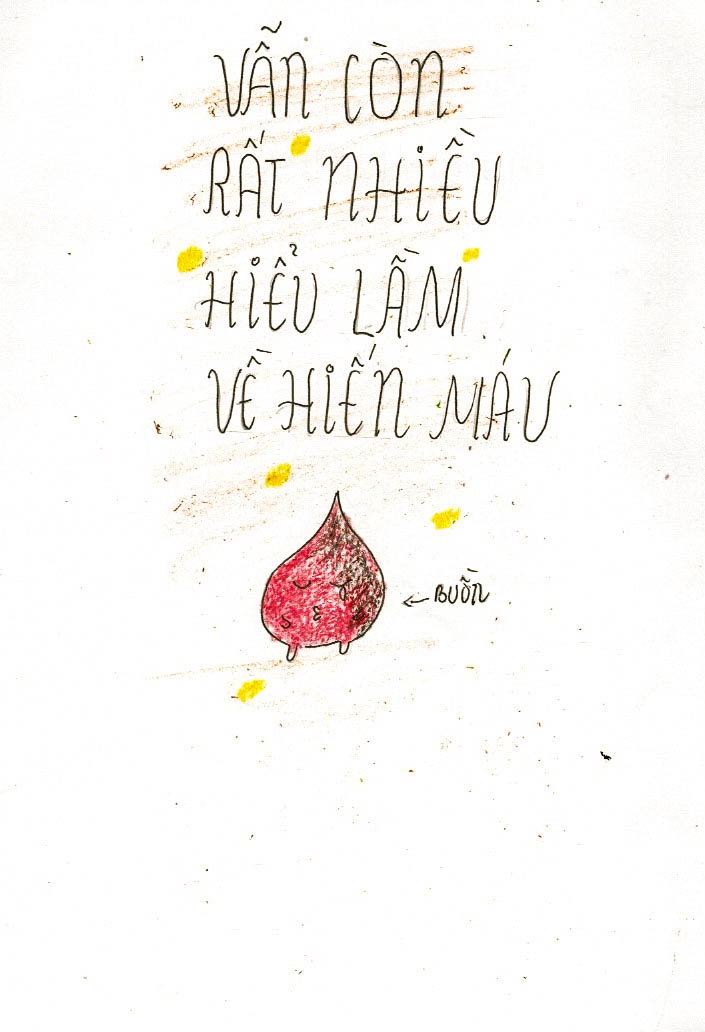 VẪN CÒN
RẤT NHIỀU
HIỂU LẦM
VỀ HIẾN MÁU
BUỒN